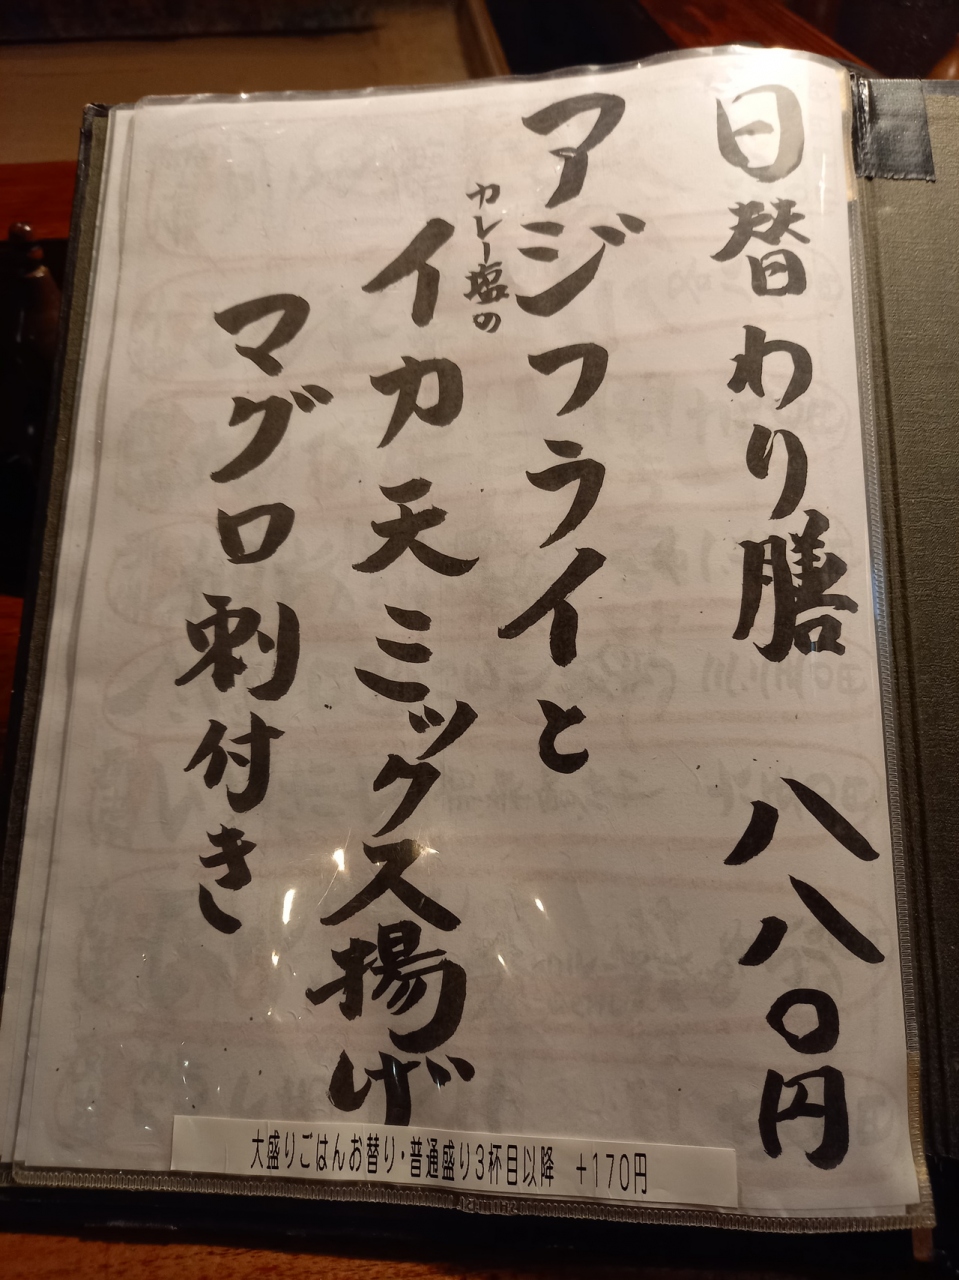 日替わり膳 八八〇円
アジフライと
カレー塩の
イカ天ミックス揚げ
マグロ刺付き
大盛りごはんお替り・普通盛り3杯目以降 +170円